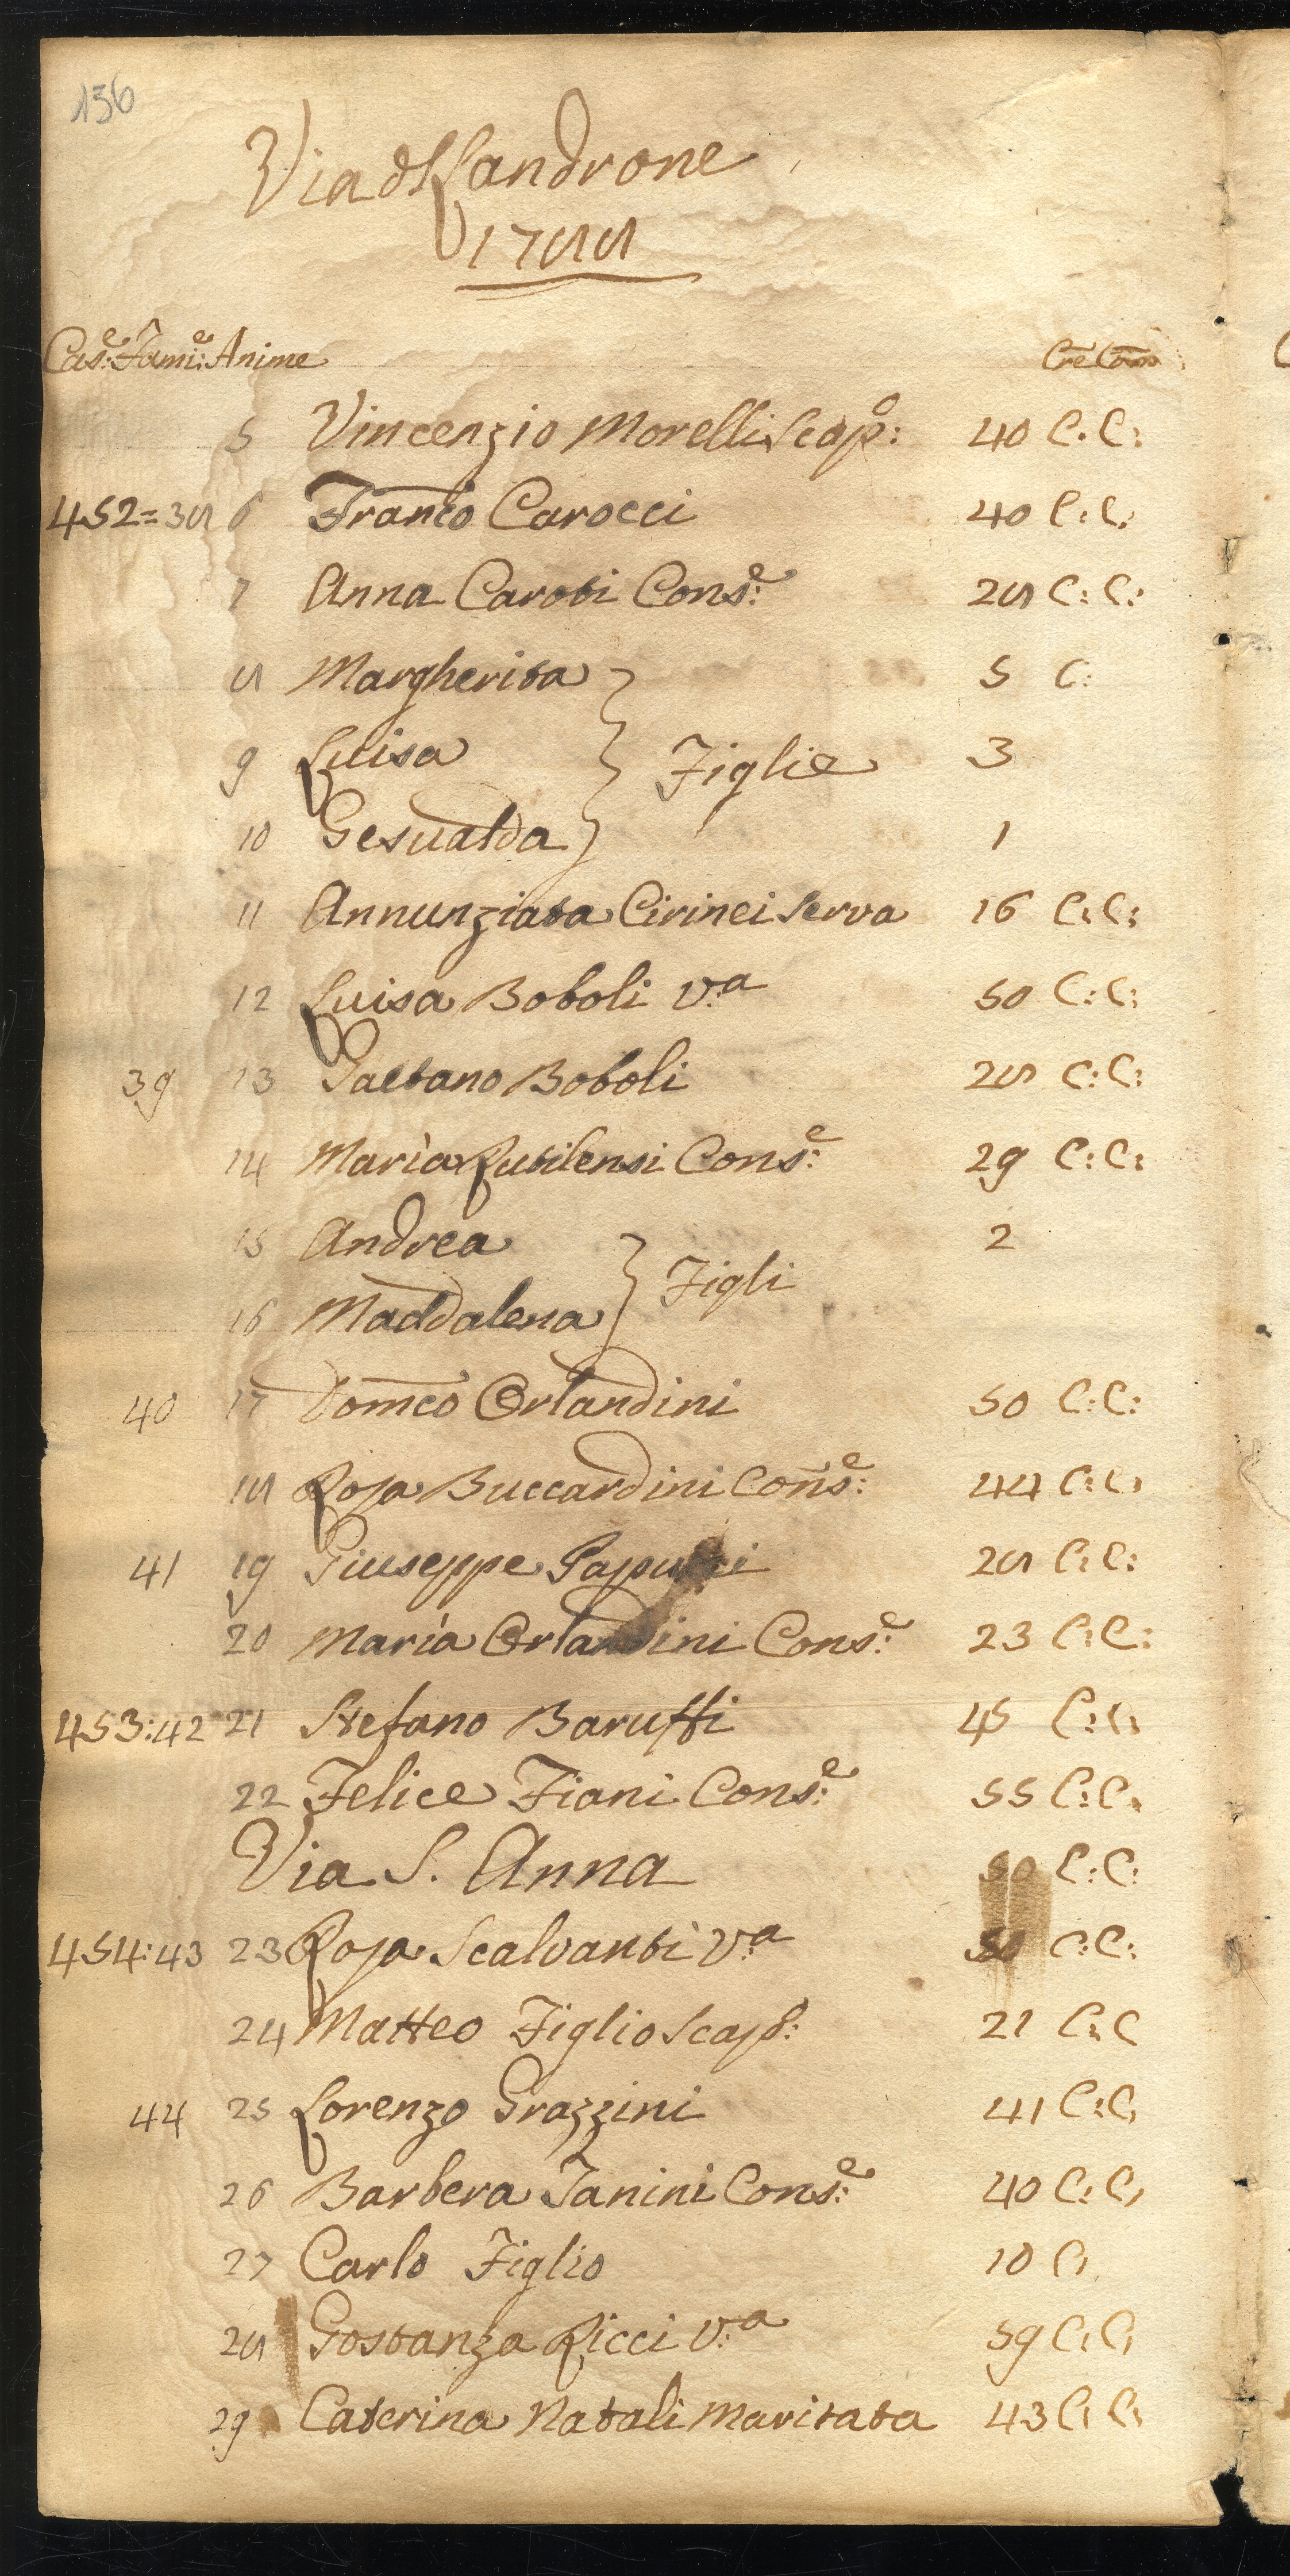 136
Via d Landrone
1788
Cas:e Fami:e Anime Cre Com
5 Vincenzio Morelli Scap:o 40 C. C:
452=38 6 Franco Carocci 40 C: C:
7 Anna Caroti Cons:e 28 C: C:
8 Margherita 5 C:
9 Luisa } Figlie 3
10 Gesualda 1
11 Annunziata Cirinei Serva 16 C: C:
12 Luisa Boboli V:a 50 C: C:
39 13 Gaetano Boboli 28 C: C:
14 Maria Rutilensi Cons:e 29 C: C:
15 Andrea 2
16 Maddalena } Figli
40 17 Domco Orlandini 50 C: C:
18 Rosa Buccardini Cons:e 44 C: C:
41 19 Giuseppe 28 C: C:
20 Maria Orlandini Cons:e 23 C: C:
453:42 21 Stefano Baruffi 45 C: C:
22 Felice Fiani Cons:e 55 C: C.
Via S. Anna 50 C: C:
454:43 23 Rosa Scalvanti V:a 50 C: C:
24 Matteo Figlio Scap: 21 C: C
44 25 Lorenzo Grazzini 41 C: C,
26 Barbera Janini Cons:e 40 C: C,
27 Carlo Figlio 10 C,
28 Gostanza Ricci V:a 59 C, C,
29 Caterina Natali Maritata 43 C, C,